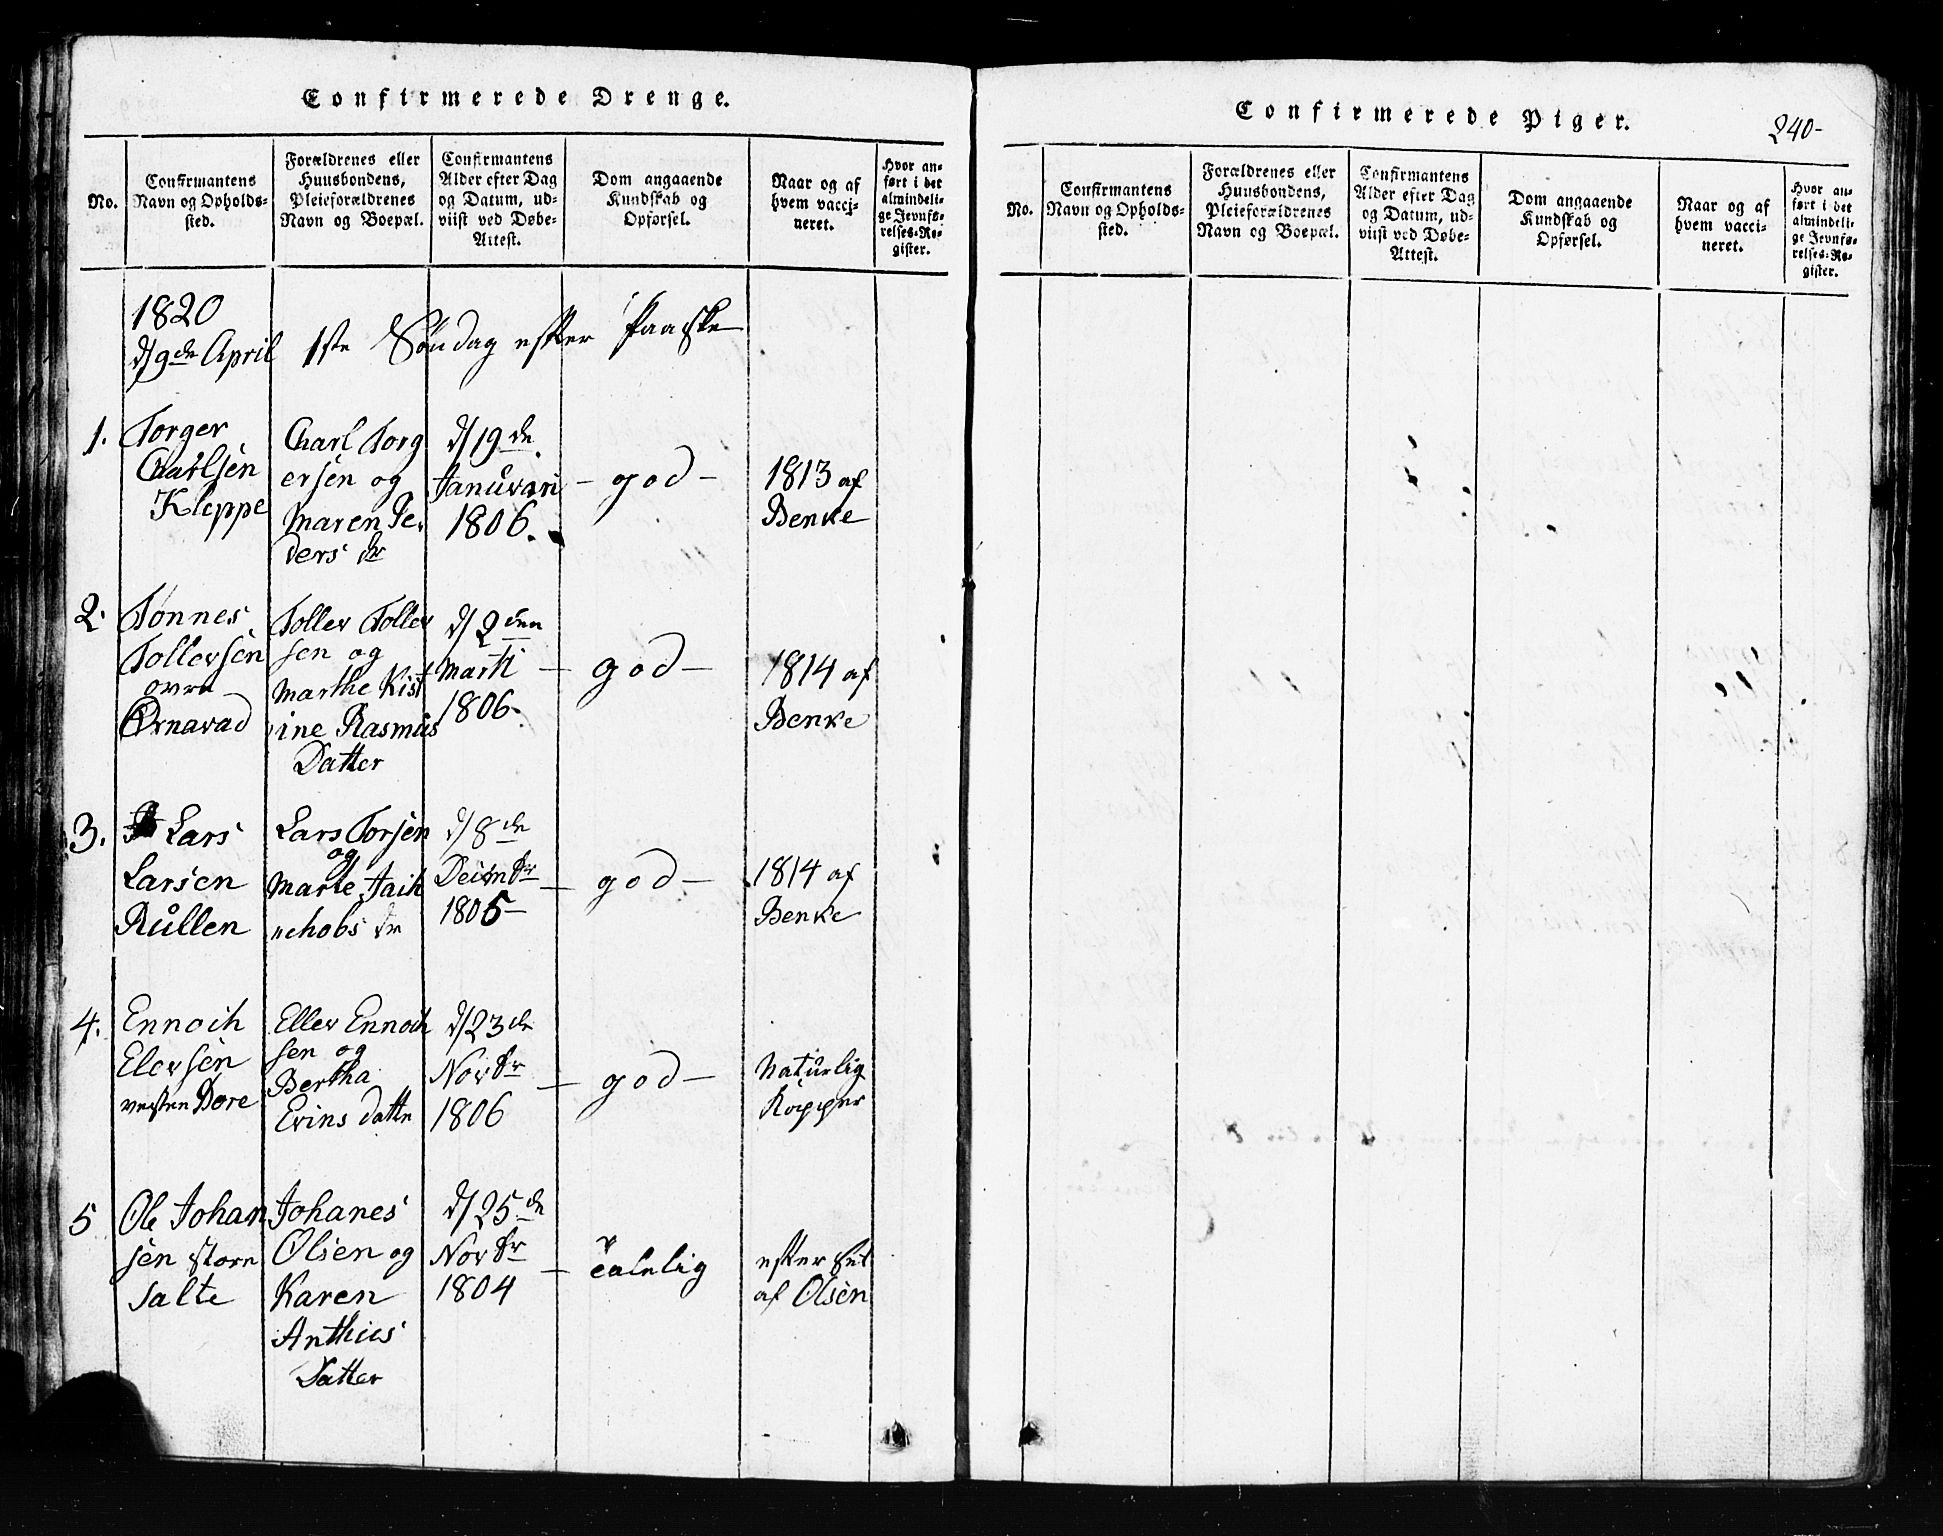 Confirmerede Drenge.
No.
Confirmantens
Navn og Opholds-
sted.
Forældrenes eller
Huusbondens,
Pleieforældrenes
Navn og Boepæl.
Confirmantens
Alder efter Dag
og Datum, ud-
viist ved Døbe-
Attest.
Dom angaaende
Kundskab og
Opførsel.
Naar og af
hvem vacci-
neret.
Hvor an-
ført i det
almindeli-
ge Jevnfø-
relses-Re-
gister.
1820
d/9de April 1ste Søndag efter Paaske
1.
Torger
Carlsen
Kleppe
Charl Torg
ersen og
Maren Pe-
ders dr
d/19de
Januvari
1806.
– god –
1813 af
Benke
2.
Tønnes
Tollersen
ovre
Ornavad
Toller Toller
sen og
Marthe Kist
ine Rasmus
Datter
d/2den
Marti
1806.
– god –
1814 af
Benke
3.
Lars
Larsen
Rullen
Lars Torsen
og
Marte Jaih
"chobs dr
d/8de
1805 –
– god –
1814 af
Benke
4.
Ennoch
Elersen
Bore
Eller Ennoch
sen og
Bertha
Evins datte
d/23de
Novbr
1806
– god –
Naturlig
Kopper
5
Ole Johan
sen store
Salte
Johanes
Olsen og
Karen
Anthius
Datter
d/25de
Novbr
1804
–
af Olsen
Confirmerede Piger.
240-
No.
Confirmantens
Navn og Opholds-
sted.
Forældrenes eller
Huusbondens,
Pleieforældrenes
Navn og Boepæl.
Confirmantens
Alder efter Dag
og Datum, ud-
viist ved Døbe-
Attest.
Dom angaaende
Kundskab og
Opførsel.
Naar og af
hvem vacci-
neret.
Hvor an-
ført i det
almindeli-
ge Jevnfø-
relses-Re-
gister.